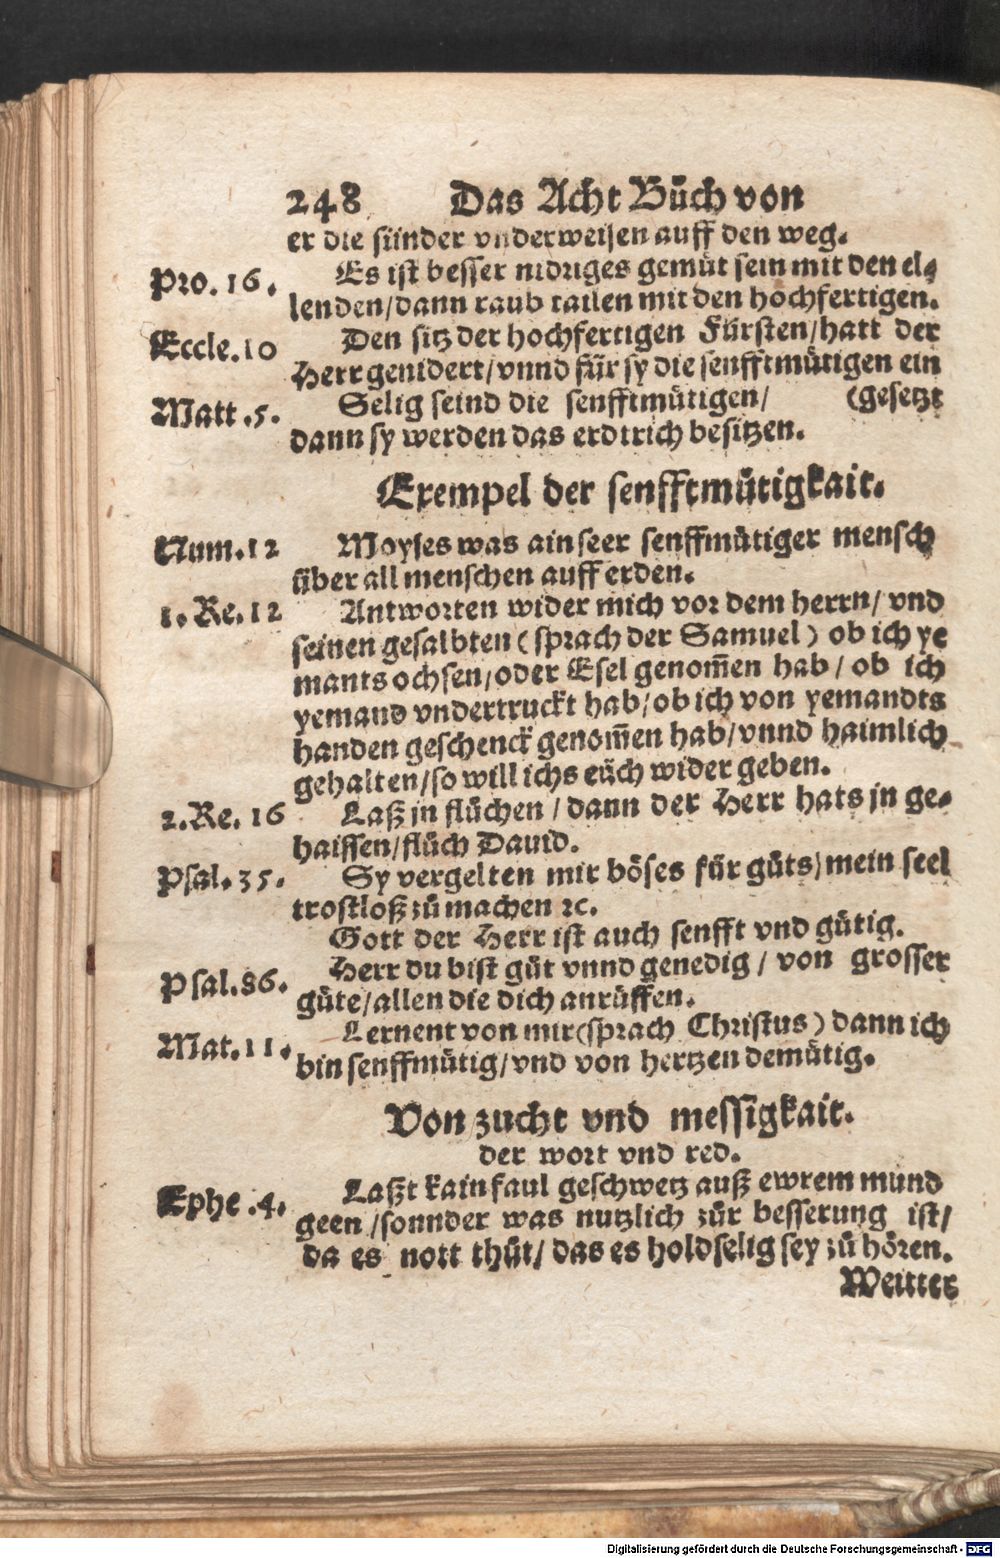 248 Das Acht Bůch von
er die sünder vnderweisen auff den weg.
Pro. 16. Es ist besser nidriges gemüt sein mit den el⸗
lenden/dann raub tailen mit den hochfertigen.
Eccle. 10 Den sitz der hochfertigen Fürsten/hatt der
Herr genidert/vnnd für sy die senfftmütigen ein
Matt .5. Selig seind die senfftmütigen/ (gesetzt
dann sy werden das erdtrich besitzen.
Exempel der senfftmütigkait.
Num. 12 Moyses was ain seer senffmütiger mensch
über all menschen auff erden.
1. Re. 12 Antworten wider mich vor dem herrn/ vnd
seinen gesalbten (sprach der Samuel) ob ich ye
mants ochsen/oder Esel genom̃en hab/ ob ich
yemand vndertruckt hab/ob ich von yemandts
handen geschenck genom̃en hab/vnnd haimlich
gehalten/so will ichs eüch wider geben.
2. Re. 16 Laß jn flůchen/dann der Herr hats jn ge⸗
haissen/flůch Dauid.
Psal. 35. Sy vergelten mir böses für gůts/mein seel
trostloß zů machen ꝛc.
Gott der Herr ist auch senfft vnd gütig.
Psal. 86. Herr du bist gůt vnnd genedig/ von grosser
güte/allen die dich anrůffen.
Mat. 11. Lernent von mir(sprach Christus) dann ich
bin senffmütig/vnd von hertzen demütig.
Von zucht vnd messigkait.
der wort vnd red.
Ephe .4. Laßt kain faul geschwetz auß ewrem mund
geen/sonnder was nutzlich zůr besserung ist/
da es nott thůt/ das es holdselig sey zů hören.
Weitter
Digitalisierung gefördert durch die Deutsche Forschungsgemeinschaft - DFG